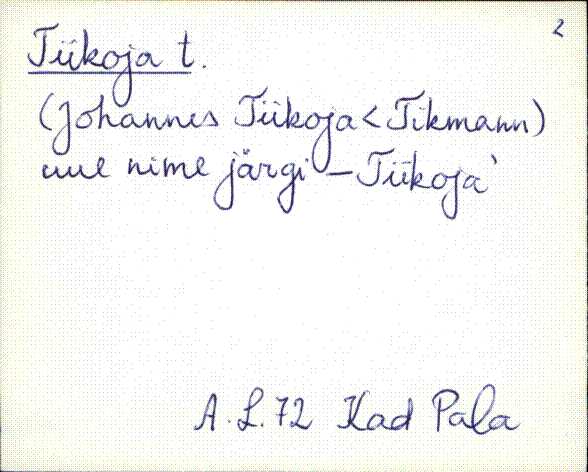 2
Tiikoja t.
(Johannes Tiikoja < Tikmann)
uue nime järgi – Tiikoja`
A.L.72 Kad Pala